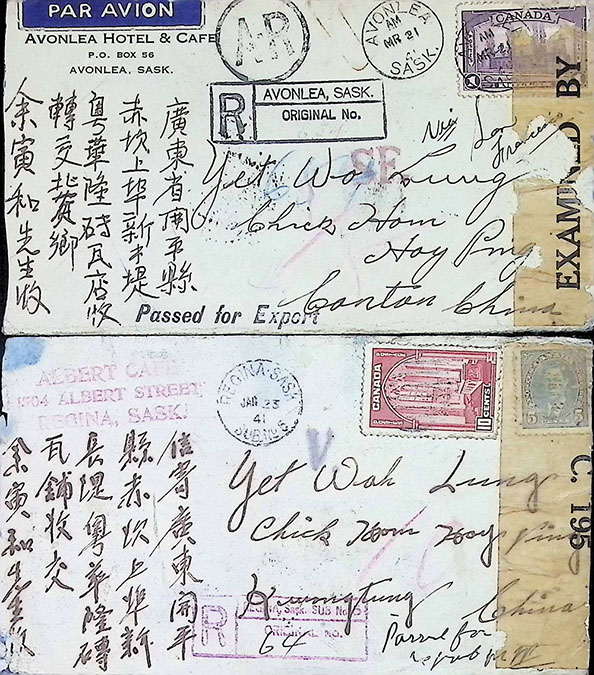 PAR AVION
AVONLEA HOTEL & CAFE
P.O. BOX 56
AVONLEA, SASK.
AR
AVONLEA
AM
MR 21
41
SASK.
CANADA
R
AVONLEA, SASK.
ORIGINAL No.
Via San
Francisco
EXAMINED BY
Yet Wah Lung
Chick Hom
Hoy Ping
Canton China
廣東省開平縣
赤坎上埠新才堤
粤華隆磚瓦店收
轉交北黃鄉
余寅和先生收
Passed for Export
ALBERT CAFE
1904 ALBERT STREET
REGINA, SASK.
REGINA-SASK
JAN 23
41
SUB No 5
V
CANADA
10 CENTS
5
C. 195
Yet Wah Lung
Chick Hom Hoy Ping
Kwongtung China
信寄廣東開平
縣赤坎上埠新
長堤粤華隆磚
瓦鋪收交
余寅和先生收
R
REGINA, Sask. SUB No. 5
ORIGINAL NO.
64
Passed for